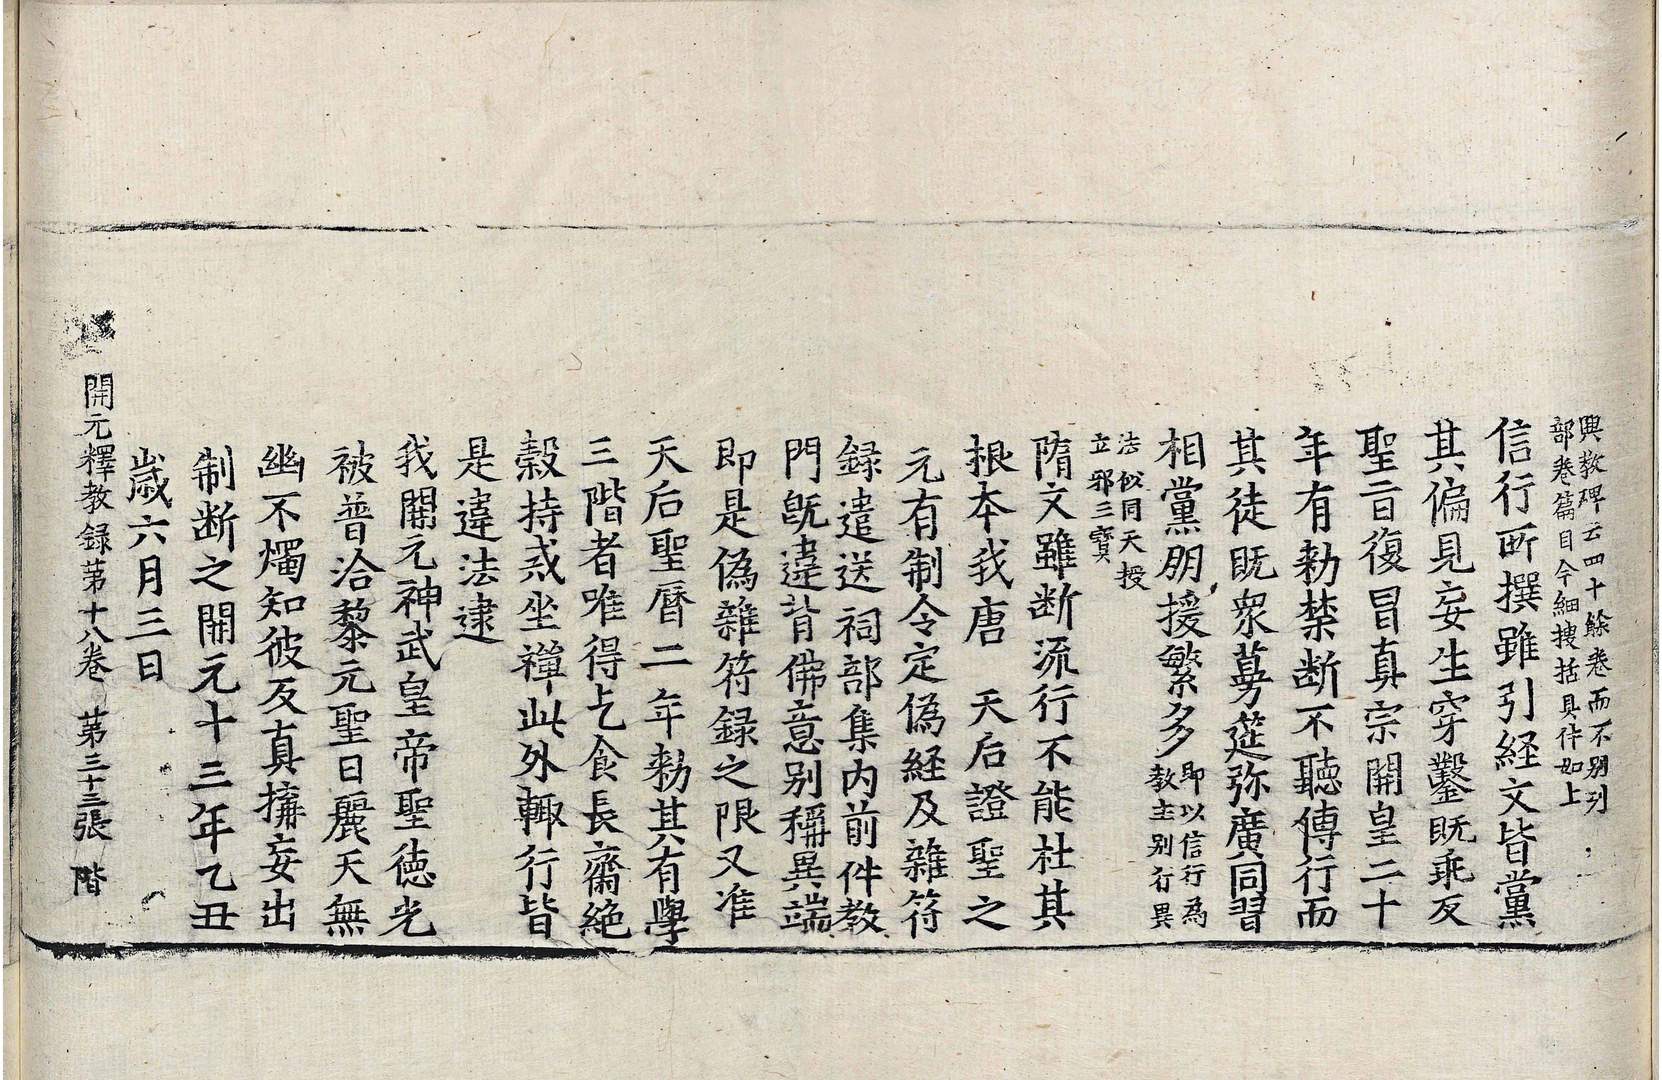 興教碑云四十餘卷而不別列
部卷篇目今細搜括具件如上
信行所撰雖引経文皆黨
其偏見妄生穿鑿既乖反
聖旨復冒真宗開皇二十
年有勑禁断不聽傳行而
其徒既衆蔓莚弥廣同習
相黨朋援繁多即以信行為教主別行異
法似同天授立邪三寳
隋文雖断流行不能杜其
根本我唐 天后證聖之
元有制令定偽経及雜符
録遣送祠部集内前件教
門既違背佛意别稱異端
即是偽雜符録之限又准
天后聖曆二年勑其有學
三階者唯得乞食長齋絶
穀持戒坐禪此外輙行皆
是違法逮
我開元神武皇帝聖徳光
被普洽黎元聖日麗天無
幽不燭知彼反真搆妄出
制断之開元十三年乙丑
歳六月三日
開元釋教録苐十八卷 苐三十三張 階